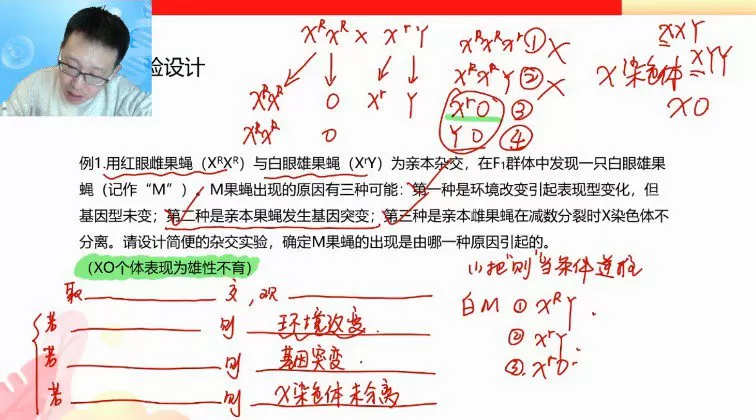 验设计
X^R X^R × X^r Y
X^R X^R O X^r Y
X^R X^R O
X^R X^R X^r ① X
X^R X^R Y ② X
X^r O ③
Y O ④
XXY
XYY
X染色体
XO
例1.用红眼雌果蝇（XᴿXᴿ）与白眼雄果蝇（XʳY）为亲本杂交，在F₁群体中发现一只白眼雄果
蝇（记作“M”）。M果蝇出现的原因有三种可能：第一种是环境改变引起表现型变化，但
基因型未变；第二种是亲本果蝇发生基因突变；第三种是亲本雌果蝇在减数分裂时X染色体不
分离。请设计简便的杂交实验，确定M果蝇的出现是由哪一种原因引起的。
（XO个体表现为雄性不育）
取 交，观
若 则 环境改变.
若 则 基因突变.
若 则 X染色体未分离
(1)把“则”当条件逆推
白M ① X^R Y
② X^r Y
③ X^r O